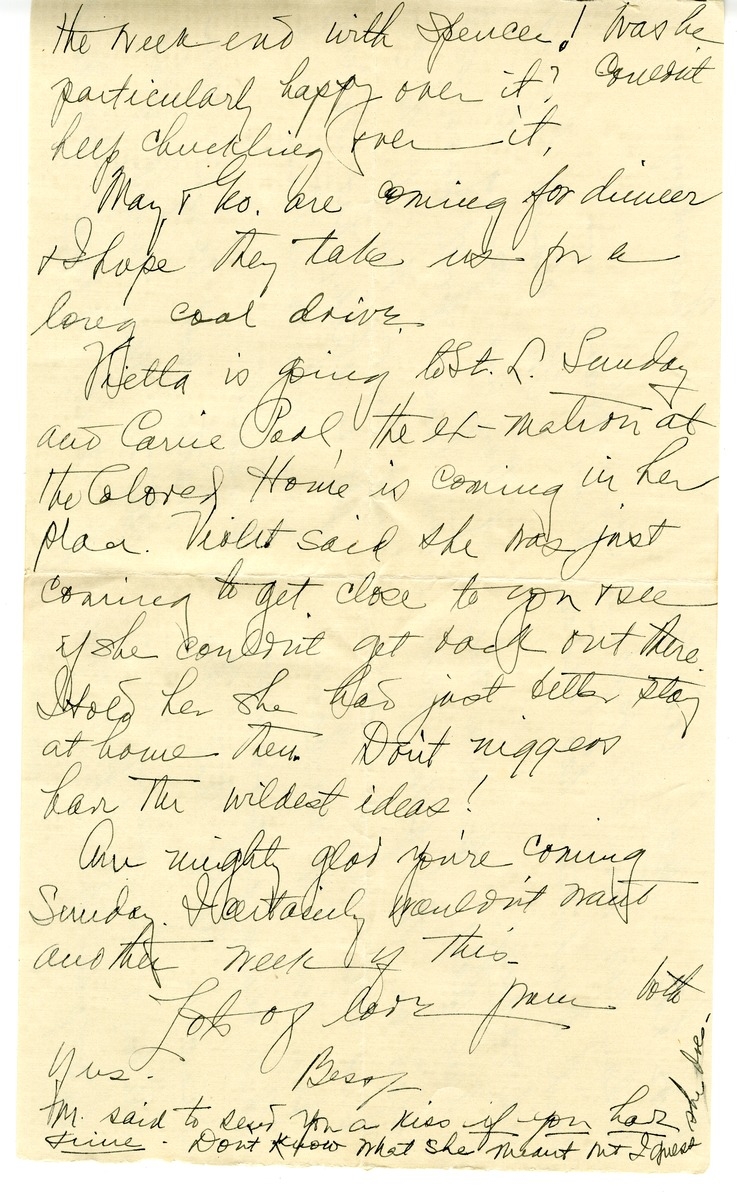 the week end with Spencer! Was he
particularly happy over it? Couldn't
keep chuckling over it.
May & Geo. are coming for dinner
& I hope they take us for a
long cool drive.
Vietta is going to St. L. Sunday
and Carrie Pool, the ex-matron at
the Colored Home is coming in her
place. Violet said she was just
coming to get close to you & see
if she couldn't get back out there
I told her she had just better stay
at home then. Don't niggers
have the wildest ideas!
Am mighty glad you're coming
Sunday. I certainly wouldn't want
another week of this.
Lots of love from both
yrs. Bess
M. said to send you a kiss if you had
time. Don't know what she meant but I guess
she does.